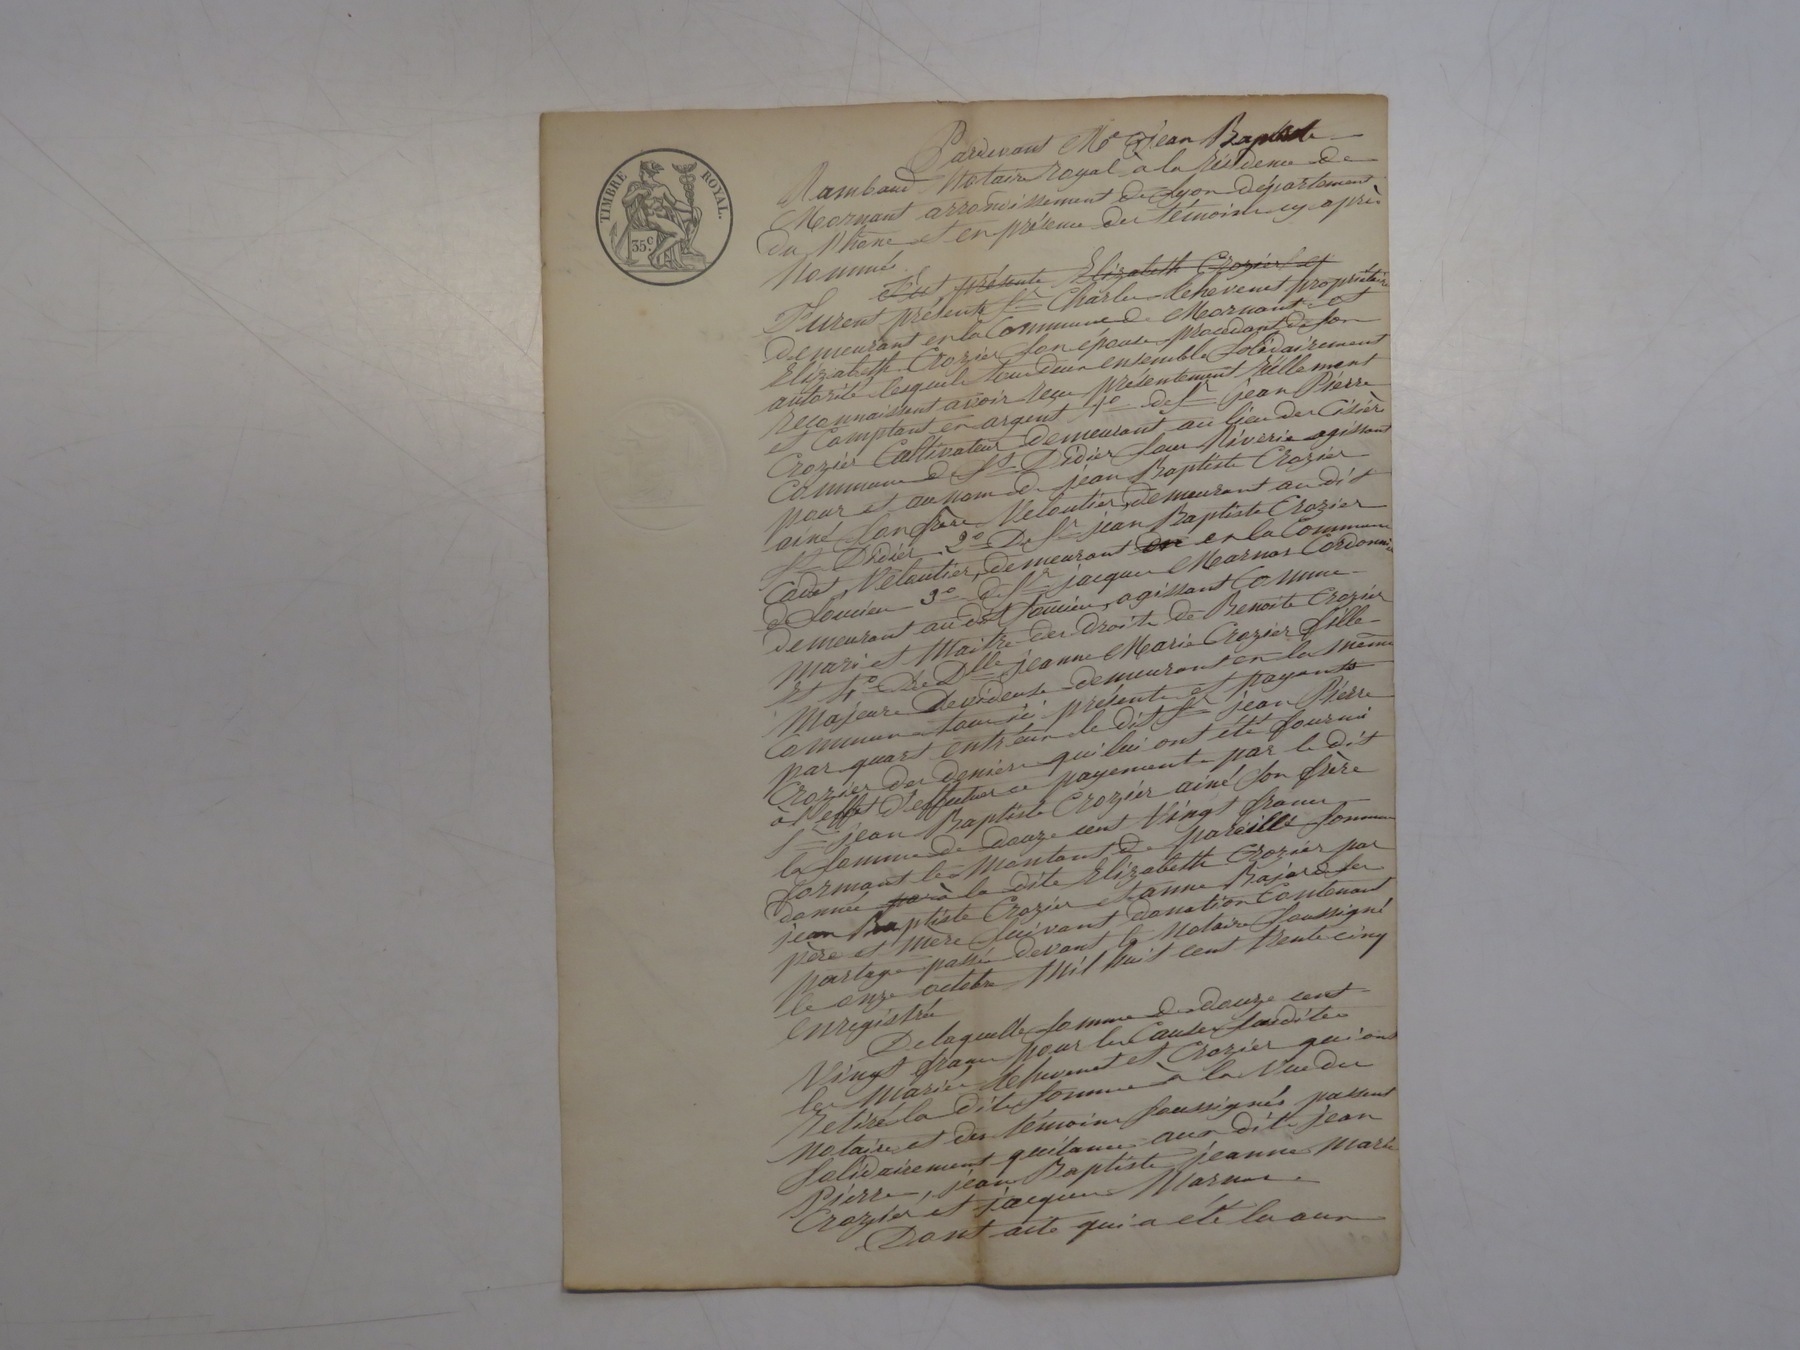 TIMBRE ROYAL.
35c.
Pardevant Me Jean Baptiste
Rambaud Notaire royal à la résidence de
Mornant arrondissement de Lyon département
du Rhône et en présence des témoins cy après
Nommés.
Fut présente Elizabeth Crozier et
Furent présents Sr Charles thevenet propriétaire
demeurant en la Commune de Mornant et
Elizabeth Crozier son épouse procédant de son
autorité lesquels tous deux ensemble solidairement
reconnaissent avoir reçu présentement réellement
et Comptant en argent 1o de Sr jean Pierre
Crozier Cultivateur demeurant au lieu des
Commune de St Didier sous Riverie agissant
pour et au nom de jean Baptiste Crozier
ainé son frère Veloutier, demeurant au dit
St Didier 2o De Sr jean Baptiste Crozier
Cadet, Veloutier, demeurant en la Commune
de Soucieu 3o de Sr jacques Marnas Cordonnier
demeurant au dit Soucieu, agissant Comme
mari et Maître des droits de Benoite Crozier
et 4o De Dlle jeanne Marie Crozier fille
Majeure Devideuse demeurant en la même
Commune tous ici présents et payants
par quart entr'eux le dit Sr jean Pierre
Crozier des deniers qui lui ont été fournis
à l'effet d'effectuer ce payement par le dit
S jean Baptiste Crozier ainé son frère
la somme de douze cent Vingt francs
formant le Montant de pareille somme
donnée à la dite Elizabeth Crozier par
jean Baptiste Crozier et anne Bajard ses
père et mère suivant donation Contenant
partage passée devant le Notaire soussigné
le onze octobre Mil huit cent trente cinq
enregistrée
De laquelle somme de douze cent
Vingt francs pour les Causes susdites
les Mariés thevenet et Crozier qui ont
retiré la dite somme à la Vue du
Notaire et des témoins soussignés passent
solidairement quitance aux dits jean
Pierre, jean Baptiste, jeanne Marie
Crozier et jacques Marnas.
Dont acte qui a été lu aux